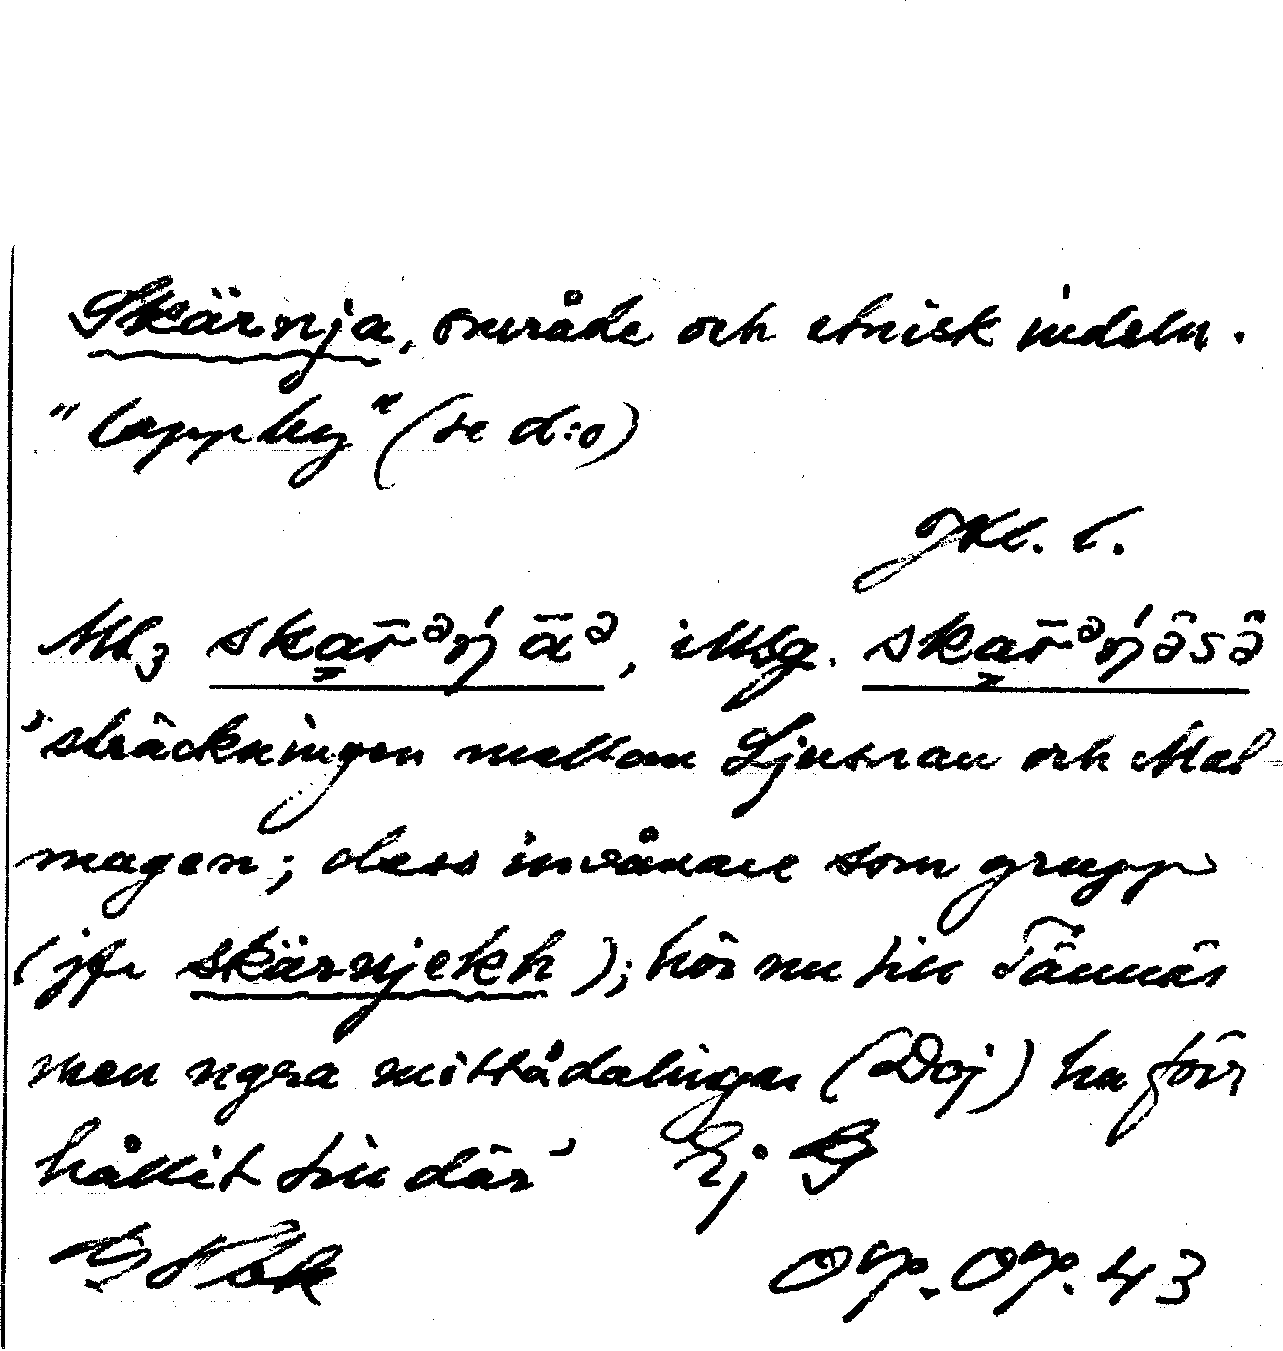 Skärnja, område och etnisk indeln.
"lappby" (se d:o)
skar̄ᵊńj āᵊ, illsg. skar̄ᵊńjəsə̂
'sträckningen mellan Ljusnan och Mal-
magen; dess invånare som grupp
(jfr skärnjekh); hör nu till Tännäs
men ngra mittådalingar (Doj) ha förr
hållit till där' Ej
07.07.43